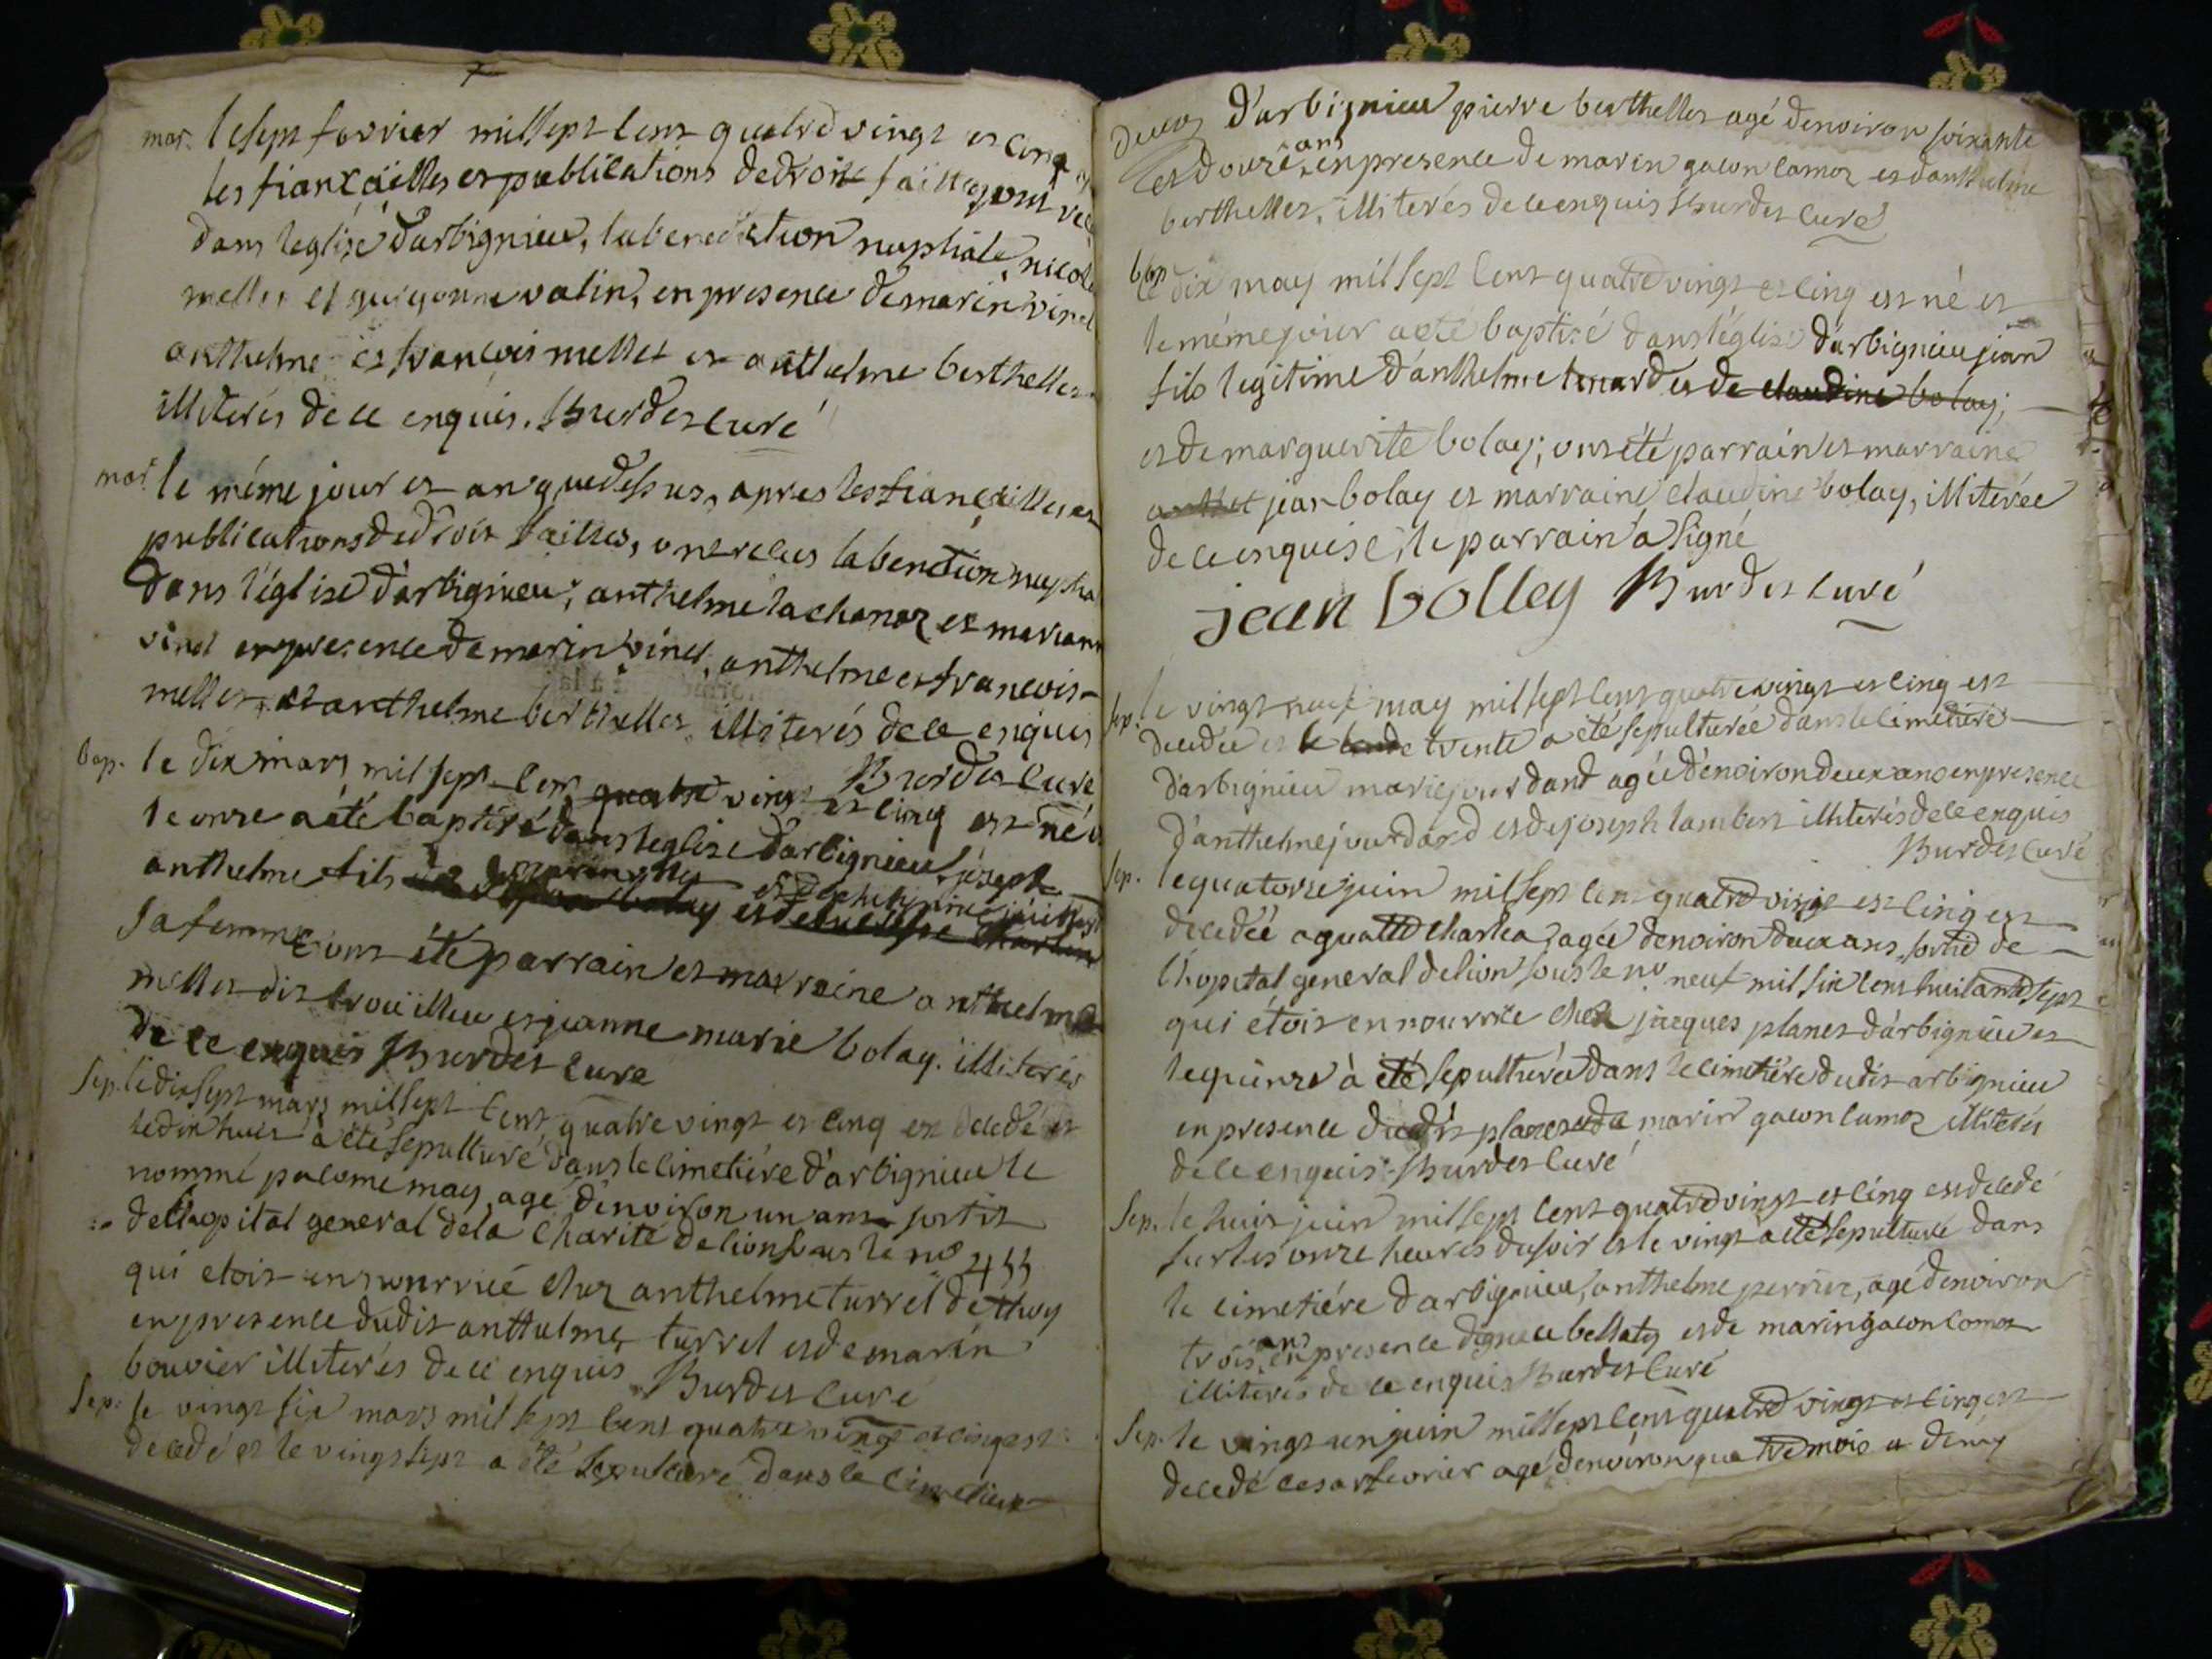 mar. le sept fevrier mil sept cent quatre vingt et cinq
les fiançailles et publications de droit faittes ont
dans l'eglise d'arbignieu, la benediction nuptiale, nicolas
mellet et guigonne vatin, en presence de marin vinet
anthelme et francois mellet et anthelme berthellet
illiterés de ce enquis. Burdet curé
mar. le même jour et an que dessus, apres les fiançailles et
publications de droit faittes, ont recus la bendtion nuptia
dans l'église d'arbignieu, anthelme lachanaz et mariann
vinet en presence de marin vinet, anthelme et francois
mellet, et anthelme berthellet illiterés de ce enquis
Burdet curé
bap. le dix mars mil sept cent quatre vingt et cinq est né e
le onze a été baptisé dans l'eglise d'arbignieu joseph
anthelme fils
sa femme ont été parrain et marraine anthelme
mellet dit trouillu et jeanne marie bolay. illiterés
de ce enquis Burdet curé
Sep. le dix sept mars mil sept cent quatre vingt et cinq est decedé et
le dix huit a été sepulturé dans le cimetiére d'arbignieu le
nommé palome may, agé d'environ un ans sortit
de l'hopital general de la charité de lion sous le no 455
qui etoit en nourrice chez anthelme turrel de thoy
en presence dudit anthelme turrel et de marin
bouvier illiterés de ce enquis Burdet curé
Sep. le vingt six mars mil sept cent quatre vingt et cinq est
decedé et le vingt sept a été sepulturé dans le cimetiere
d'arbignieu pierre berthellet agé d'environ soixante
et douze ans, en presence de marin gacon camoz et d'anthelme
berthellet, illiterés de ce enquis Burdet curé
bap. le dix may mil sept cent quatre vingt et cinq est né et
le même jour a été baptisé dans l'église d'arbignieu jean
fils legitime d'anthelme tenard et de claudine bolay;
et de marguerite bolay; ont été parrain et marraine
jean bolay et marraine claudine bolay, illiterée
de ce enquise, le parrain a signé
jean bolley Burdet curé
Sep. le vingt neuf may mil sept cent quatre vingt et cinq est
decedée et le trente a été sepulturée dans le cimetiére
d'arbignieu marie jourdand agée d'environ deux ans en presence
d'anthelme jourdand et de joseph lambert illiterés de ce enquis
Burdet curé
Sep. le quatorze juin mil sept cent quatre vingt et cinq est
decedée agathe charlea, agée d'environ deux ans, sortie de
l'hopital general de lion sous le no neuf mil six cent huitante sept
qui étoit en nourrice chez jacques planet d'arbignieu et
le quinze à été sepulturée dans le cimetiére dudit arbignieu
en presence dudit planet et de marin gacon camoz illiterés
de ce enquis. Burdet curé
Sep. le huit juin mil sept cent quatre vingt et cinq est decedé
sur les onze heures du soir et le vingt a été sepulturé dans
le cimetiére d'arbignieu, anthelme perrier, agé d'environ
trois ans en presence d'ignace bellaty et de marin gacon comoz
illiterés de ce enquis Burdet curé
Sep. le vingt un juin mil sept cent quatre vingt et cinq est
decedé cesar fevrier agé d'environ quatre mois et demy